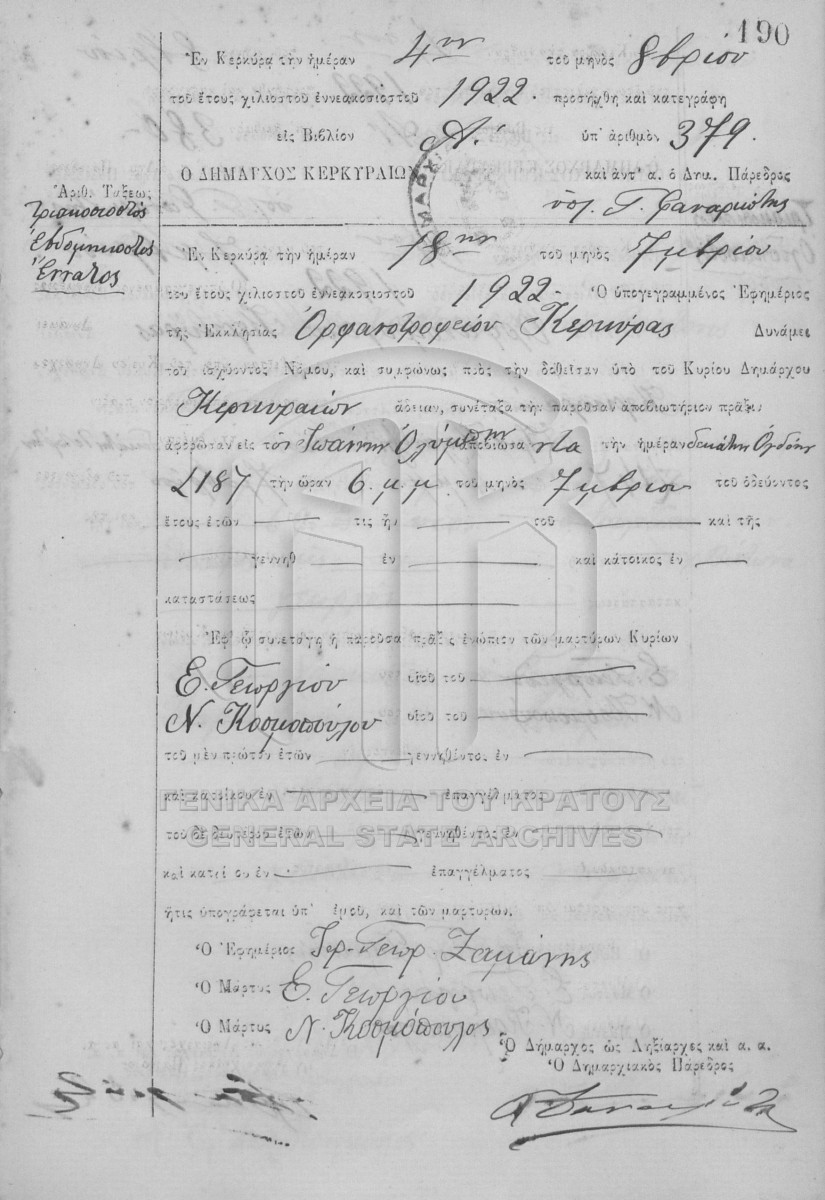 190
Ἐν Κερκύρᾳ τὴν ἡμέραν 4ην τοῦ μηνὸς 8βρίου
τοῦ ἔτους χιλιοστοῦ ἐννεακοσιοστοῦ 1922. προσήχθη καὶ κατεγράφη
εἰς Βιβλίον Α΄ ὑπ' ἀριθμὸν 379.
Ὁ ΔΗΜΑΡΧΟΣ ΚΕΡΚΥΡΑΙΩΝ καὶ ἀντ' α. ὁ Δημ. Πάρεδρος
ὑπ. Γ. Φαναριώτης
Ἀριθ. Τάξεως
Τριακοσιοστὸς
Ἑβδομηκοστὸς
Ἔννατος
Ἐν Κερκύρᾳ τὴν ἡμέραν 18ην τοῦ μηνὸς 7μβρίου
τοῦ ἔτους χιλιοστοῦ ἐννεακοσιοστοῦ 1922. Ὁ ὑπογεγραμμένος Ἐφημέριος
τῆς Ἐκκλησίας Ὀρφανοτροφείου Κερκύρας Δυνάμει
τοῦ ἰσχύοντος Νόμου, καὶ συμφώνως πρὸς τὴν δοθεῖσαν ὑπὸ τοῦ Κυρίου Δημάρχου
Κερκυραίων ἄδειαν, συνέταξα τὴν παροῦσαν ἀποβιωτήριον πρᾶξιν
ἀφορῶσαν εἰς τὸν Ἰωάννην ἀποβιώσαντα τὴν ἡμέραν δεκάτην Ὀγδόην
L187 τὴν ὥραν 6. μ.μ. τοῦ μηνὸς 7μβρίου τοῦ ὁδεύοντος
ἔτους ἐτῶν τις ἦν τοῦ καὶ τῆς
γεννηθ ἐν καὶ κάτοικος ἐν
καταστάσεως
Ἐφ' ᾧ συνετάγη ἡ παροῦσα πρᾶξις ἐνώπιον τῶν μαρτύρων Κυρίων
Ε. Γεωργίου υἱοῦ τοῦ
Ν. Κοσμοπούλου υἱοῦ τοῦ
τοῦ μὲν πρώτου ἐτῶν γεννηθέντος ἐν
καὶ κατοίκου ἐν ἐπαγγέλματος
ΓΕΝΙΚΑ ΑΡΧΕΙΑ ΤΟΥ ΚΡΑΤΟΥΣ
τοῦ δὲ δευτέρου ἐτῶν γεννηθέντος ἐν
GENERAL STATE ARCHIVES
καὶ κατοίκου ἐν ἐπαγγέλματος
ἥτις ὑπογράφεται ὑπ' ἐμοῦ, καὶ τῶν μαρτύρων.
Ὁ Ἐφημέριος Ἱερ. Γεωρ. Ζαμάνης
Ὁ Μάρτυς Ε. Γεωργίου
Ὁ Μάρτυς Ν. Κοσμόπουλος
Ὁ Δήμαρχος ὡς Ληξίαρχες καὶ α. α.
Ὁ Δημαρχιακὸς Πάρεδρος